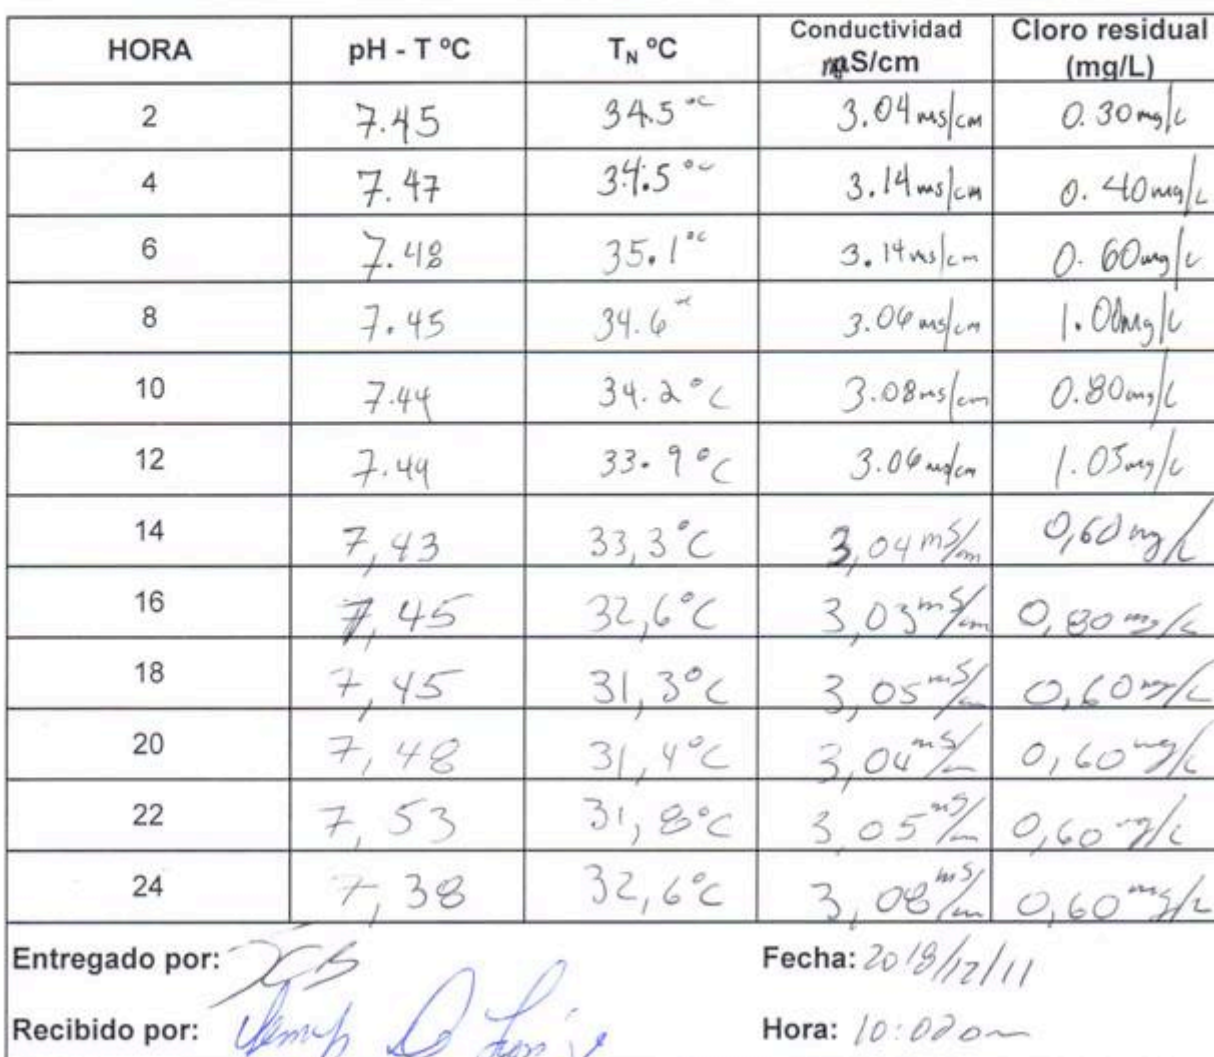 HORA pH - T ºC T_N ºC Conductividad mS/cm Cloro residual (mg/L)
2 7.45 34.5 °C 3.04 ms/cm 0.30 mg/L
4 7.47 34.5 °C 3.14 ms/cm 0.40 mg/L
6 7.48 35.1 °C 3.14 ms/cm 0.60 mg/L
8 7.45 34.6 °C 3.06 ms/cm 1.00 mg/L
10 7.44 34.2 °C 3.08 ms/cm 0.80 mg/L
12 7.44 33.9 °C 3.06 ms/cm 1.05 mg/L
14 7,43 33,3 °C 3,04 mS/cm 0,60 mg/L
16 7,45 32,6 °C 3,03 mS/cm 0,80 mg/L
18 7,45 31,3 °C 3,05 mS/cm 0,60 mg/L
20 7,48 31,4 °C 3,04 mS/cm 0,60 mg/L
22 7,53 31,8 °C 3,05 mS/cm 0,60 mg/L
24 7,38 32,6 °C 3,08 mS/cm 0,60 mg/L
Entregado por: Fecha: 2018/12/11
Recibido por: Hora: 10:00